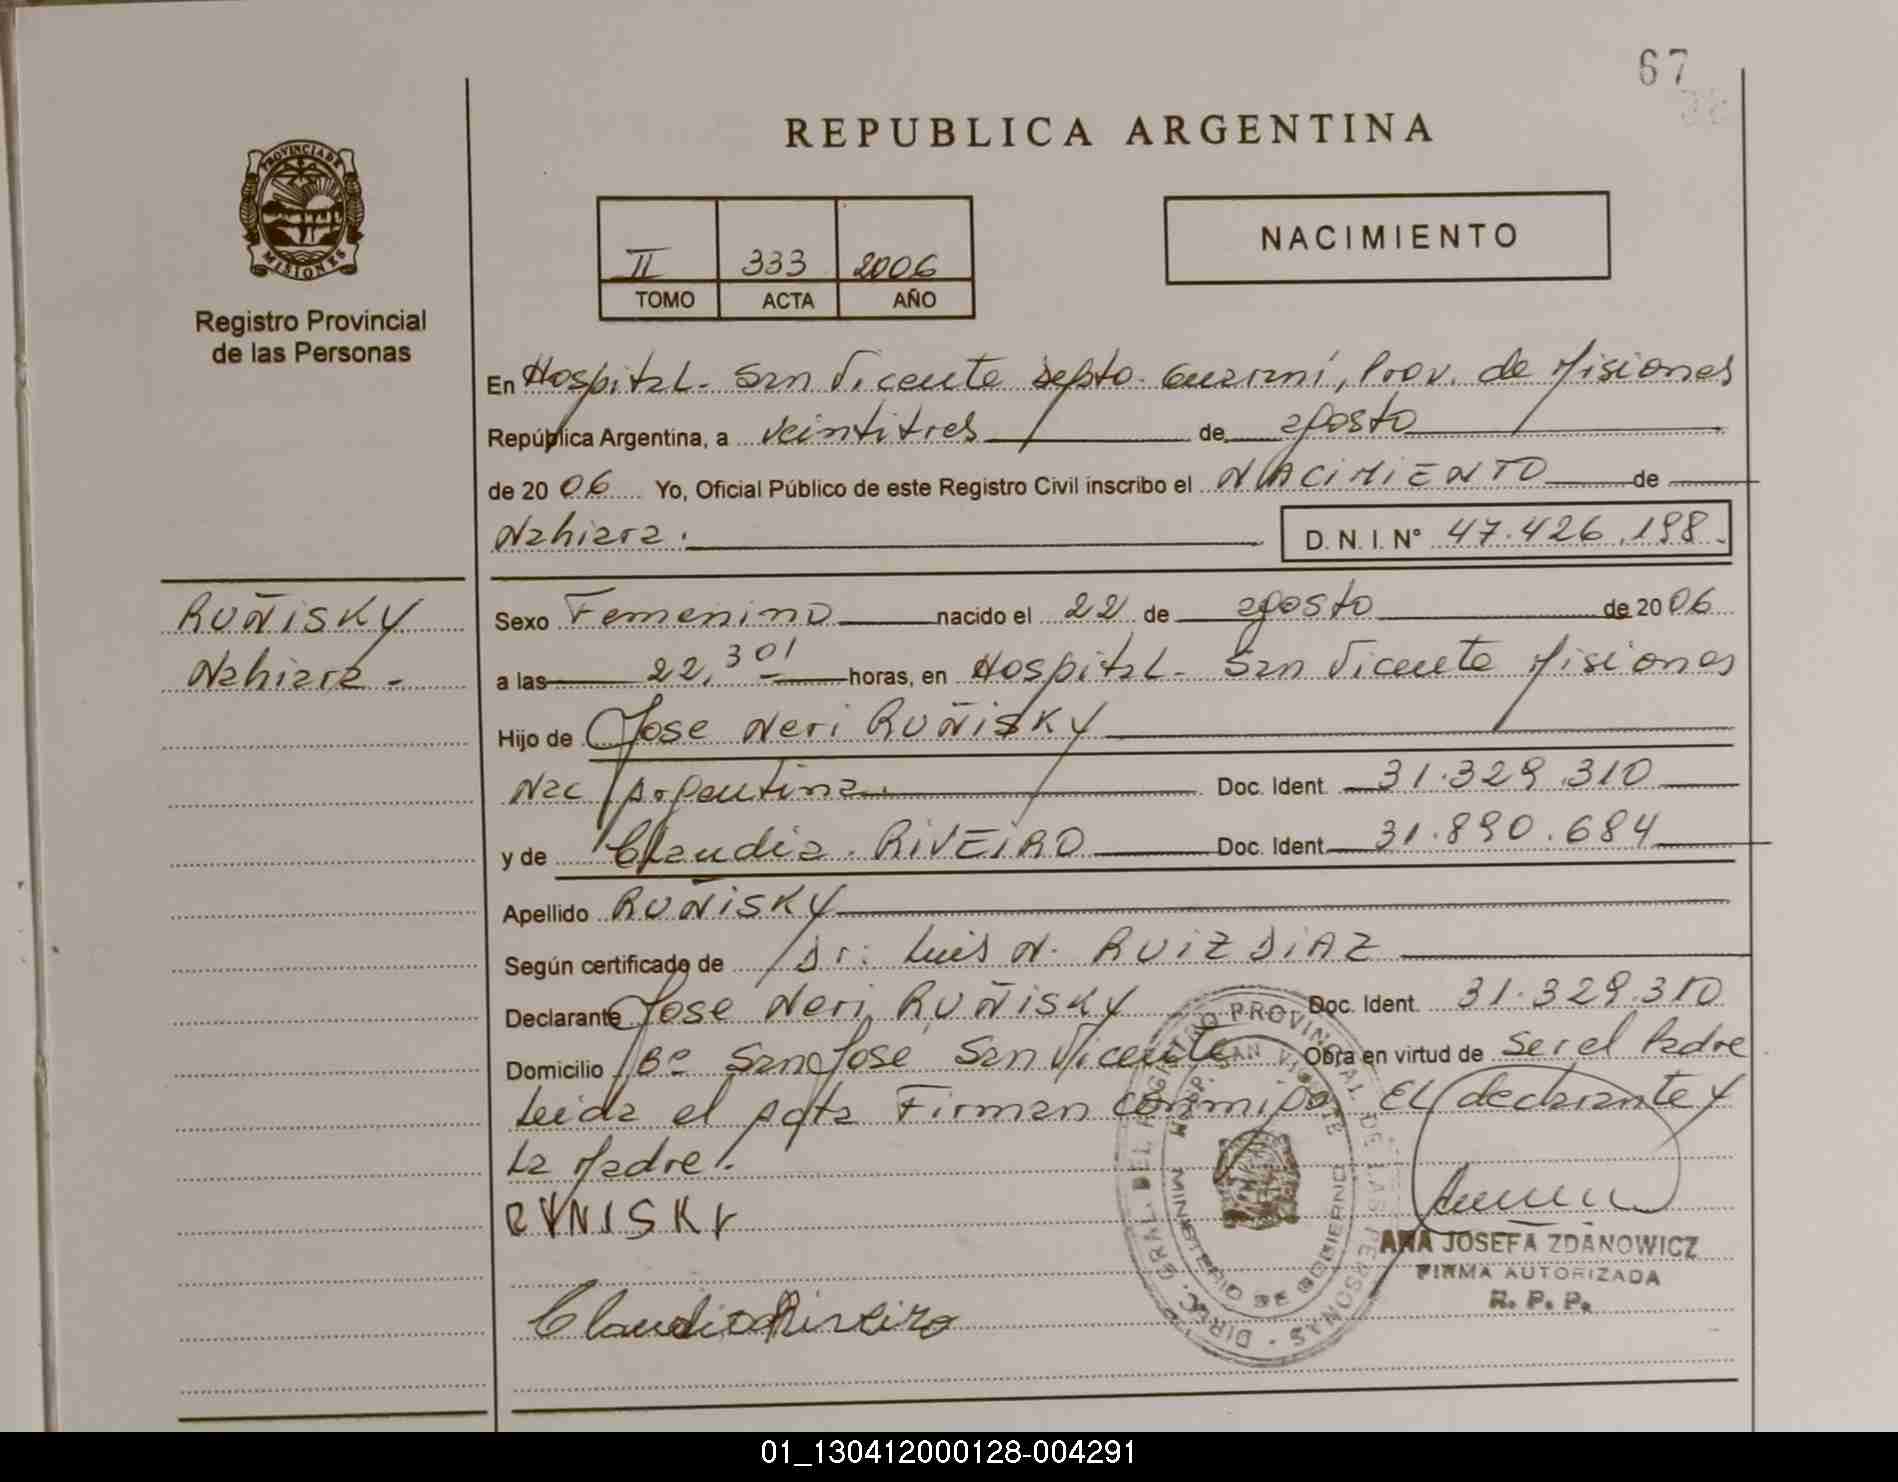 67
REPUBLICA ARGENTINA
PROVINCIA DE
MISIONES
Registro Provincial
de las Personas
II 333 2006
TOMO ACTA AÑO
NACIMIENTO
En Hospital - San Vicente Depto. Guaraní, Prov. de Misiones
República Argentina, a veintitres de agosto
de 2006 Yo, Oficial Público de este Registro Civil inscribo el NACIMIENTO de
Nahiara. D.N.I. N° 47.426.198.
RUÑISKY
Nahiara -
Sexo Femenino nacido el 22 de agosto de 2006
a las 22,301 horas, en Hospital - San Vicente Misiones
Hijo de Jose Neri RUÑISKY
Nac Argentina. Doc. Ident. 31.329.310
y de Claudia. RIVEIRO Doc. Ident. 31.890.684
Apellido RUÑISKY
Según certificado de Dr: Luis N. RUIZ DIAZ
Declarante Jose Neri RUÑISKY Doc. Ident. 31.329.310
Domicilio Bº San Jose San Vicente Obra en virtud de Ser el Padre
Leida el Acta Firman conmigo EL declarante y
La Madre.
RUNISKY
Claudia Riveiro
DIREC. GRAL. DEL REGISTRO PROVINCIAL DE LAS PERSONAS
HOSP. SAN VICENTE
MINISTERIO DE GOBIERNO
ANA JOSEFA ZDANOWICZ
FIRMA AUTORIZADA
R. P. P.
01_130412000128-004291